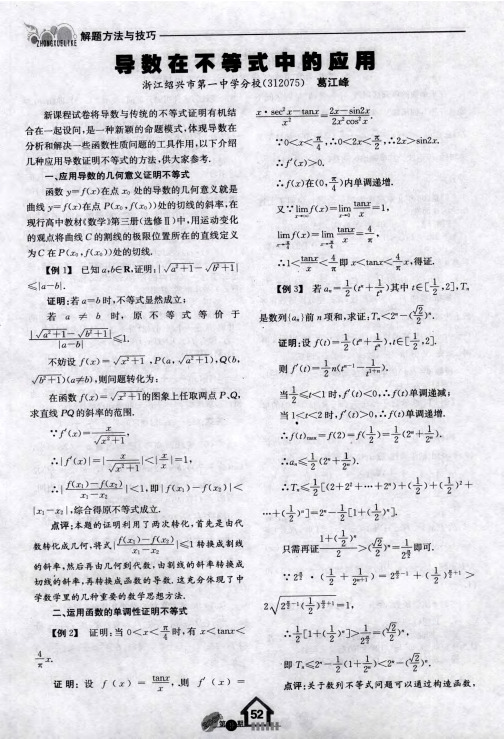 ZHONGXUELIKE 解题方法与技巧
导数在不等式中的应用
浙江绍兴市第一中学分校(312075) 葛江峰
新课程试卷将导数与传统的不等式证明有机结
合在一起设问,是一种新颖的命题模式,体现导数在
分析和解决一些函数性质问题的工具作用,以下介绍
几种应用导数证明不等式的方法,供大家参考.
一、应用导数的几何意义证明不等式
函数 y=f(x)在点 x₀ 处的导数的几何意义就是
曲线 y=f(x)在点 P(x₀,f(x₀))处的切线的斜率,在
现行高中教材《数学》第三册(选修Ⅱ)中,用运动变化
的观点将曲线 C 的割线的极限位置所在的直线定义
为C 在 P(x₀,f(x₀))处的切线.
【例1】 已知 a,b∈R,证明:|√(a²+1)-√(b²+1)|
≤|a-b|.
证明:若 a=b 时,不等式显然成立;
若 a≠b 时,原不等式等价于
|√(a²+1)-√(b²+1)|/|a-b|≤1.
不妨设 f(x)=√(x²+1),P(a,√(a²+1)),Q(b,
√(b²+1))(a≠b),则问题转化为:
在函数 f(x)=√(x²+1)的图象上任取两点 P、Q,
求直线 PQ的斜率的范围.
∵f′(x)=x/√(x²+1),
∴|f′(x)|=|x/√(x²+1)|<|x/x|=1,
∴|(f(x₁)-f(x₂))/(x₁-x₂)|<1,即|f(x₁)-f(x₂)|<
|x₁-x₂|,综合得原不等式成立.
点评:本题的证明利用了两次转化,首先是由代
数转化成几何,将式|(f(x₁)-f(x₂))/(x₁-x₂)|≤1 转换成割线
的斜率,然后再由几何到代数,由割线的斜率转换成
切线的斜率,再转换成函数的导数.这充分体现了中
学数学里的几种重要的数学思想方法.
二、运用函数的单调性证明不等式
【例2】 证明:当 0<x<π/4时,有 x<tanx<
4/π x.
证明:设 f(x)=tanx/x,则 f′(x)=
(x·sec²x-tanx)/x²=(2x-sin2x)/(2x²cos²x).
∵0<x<π/4,∴0<2x<π/2,∴2x>sin2x.
∴f′(x)>0.
∴f(x)在(0,π/4)内单调递增.
又∵lim(x→0) f(x)=lim(x→0) tanx/x=1,
lim(x→π/4) f(x)=lim(x→π/4) tanx/x=4/π,
∴1<tanx/x<4/π即 x<tanx<4/π x,得证.
【例3】 若 aₙ=1/2(tⁿ+1/tⁿ)其中 t∈[1/2,2],Tₙ
是数列{aₙ}前 n 项和,求证:Tₙ<2ⁿ-(√2/2)ⁿ.
证明:设 f(t)=1/2(tⁿ+1/tⁿ),t∈[1/2,2].
则 f′(t)=1/2 n(tⁿ⁻¹-1/tⁿ⁺¹),
当1/2≤t<1 时,f′(t)<0,∴f(t)单调递减;
当 1<t<2时,f′(t)>0,∴f(t)单调递增.
∴f(t)max=f(2)=f(1/2)=1/2(2ⁿ+1/2ⁿ).
∴aₙ≤1/2(2ⁿ+1/2ⁿ).
∴Tₙ≤1/2[(2+2²+…+2ⁿ)+(1/2)+(1/2)²+
…+(1/2)ⁿ]=2ⁿ-1/2[1+(1/2)ⁿ].
只需再证(1+(1/2)ⁿ)/2>(√2/2)ⁿ=1/2^(n/2)即可.
∵2^(n/2)·(1/2+1/2ⁿ⁺¹)=2^(n/2-1)+(1/2)^(n/2+1)>
2√(2^(n/2-1)(1/2)^(n/2+1))=1,
∴1/2[1+(1/2)ⁿ]>1/2^(n/2)=(√2/2)ⁿ,
即 Tₙ≤2ⁿ-1/2(1+1/2ⁿ)<2ⁿ-(√2/2)ⁿ.
点评:关于数列不等式问题可以通过构造函数,
52